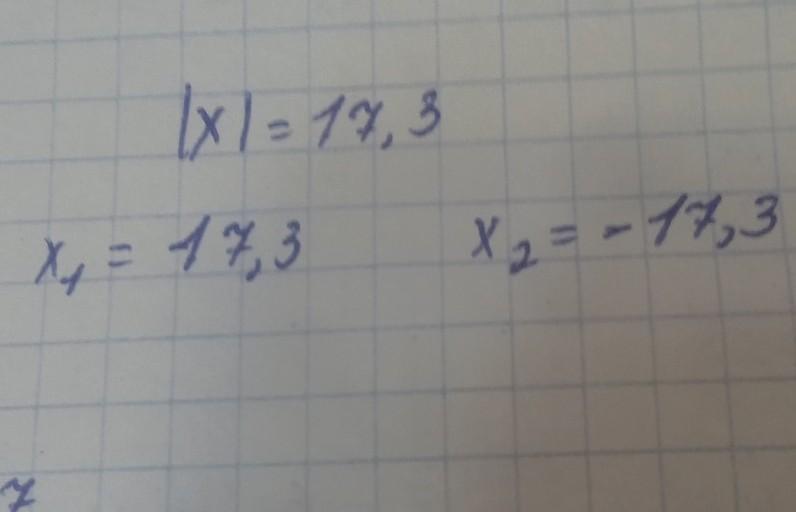 |x| = 17,3
x₁ = 17,3 x₂ = -17,3
7